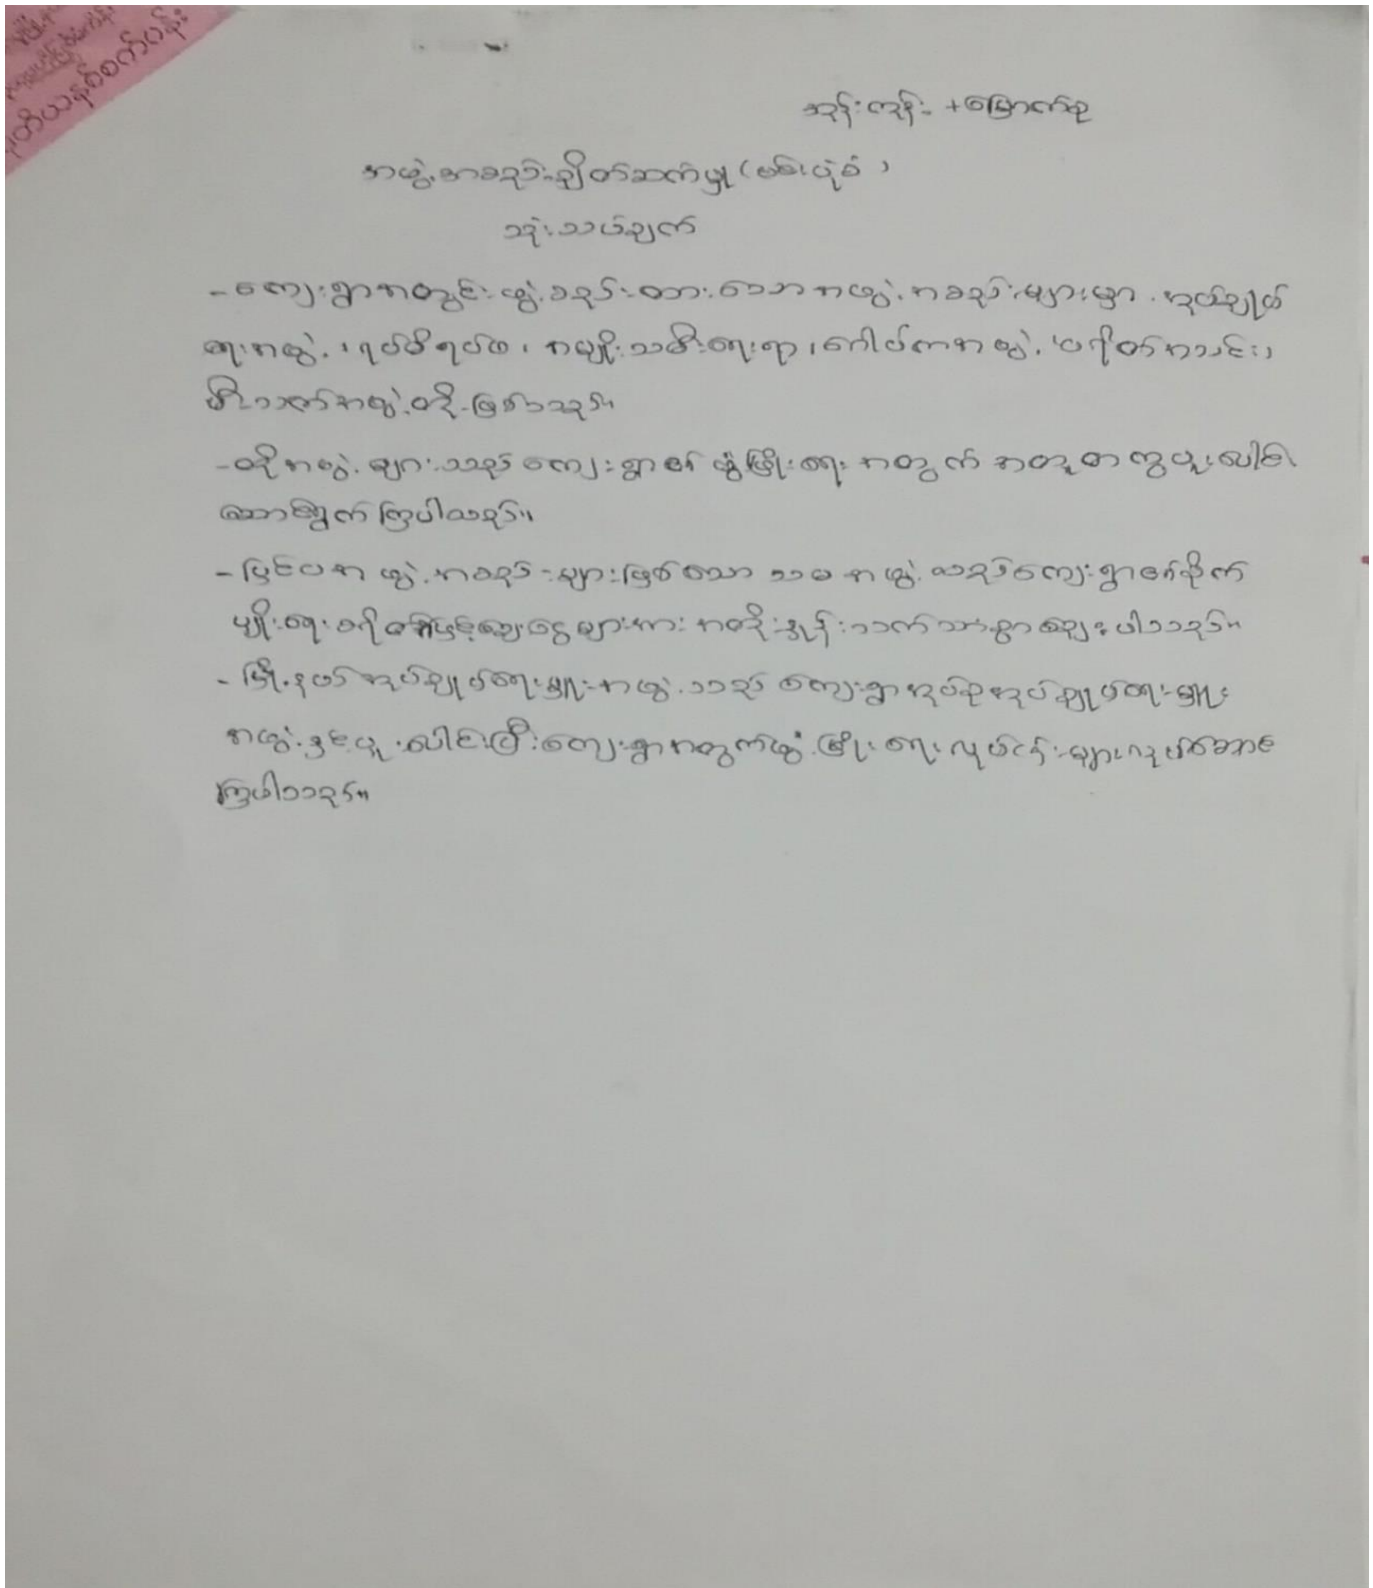 အုန်းကုန်း +မြောက်စု
အဖွဲ့အစည်းချိတ်ဆက်မှု(မစ်းပုံစံ)
သုံးသပ်ချက်
-ကျေးရွာအတွင်းဖွဲ့စည်းထားသောအဖွဲ့အစည်းများမှာ အုပ်ချုပ်
ရေးအဖွဲ့၊ရပ်မိရပ်ဖ၊ အမျိုးသမီးရေးရာ၊ဂေါပကအဖွဲ့၊ပရိတ်အသင်း၊
မီးသတ်အဖွဲ့တို့ဖြစ်သည်။
-ထိုအဖွဲ့များသည် ကျေးရွာဖွံ့ဖြိုးရေးအတွက် အတူတကွပူးပေါင်း
ဆောင်ရွက်ကြပါသည်။
-ပြင်ပအဖွဲ့အစည်းများဖြစ်သော သမအဖွဲ့သည်ကျေးရွာစိုက်
ပျိုးရေးစရိတ်ချေးငွေများအား အတိုးနှုန်းသက်သာစွာချေးပါသည်။
-မြို့နယ်အုပ်ချုပ်ရေးမှူးအဖွဲ့သည် ကျေးရွာအုပ်စုအုပ်ချုပ်ရေးမှူး
အဖွဲ့နှင့်ပူးပေါင်းပြီးကျေးရွာအတွက်ဖွံ့ဖြိုးရေးလုပ်ငန်းများလုပ်ဆောင်
ကြပါသည်။